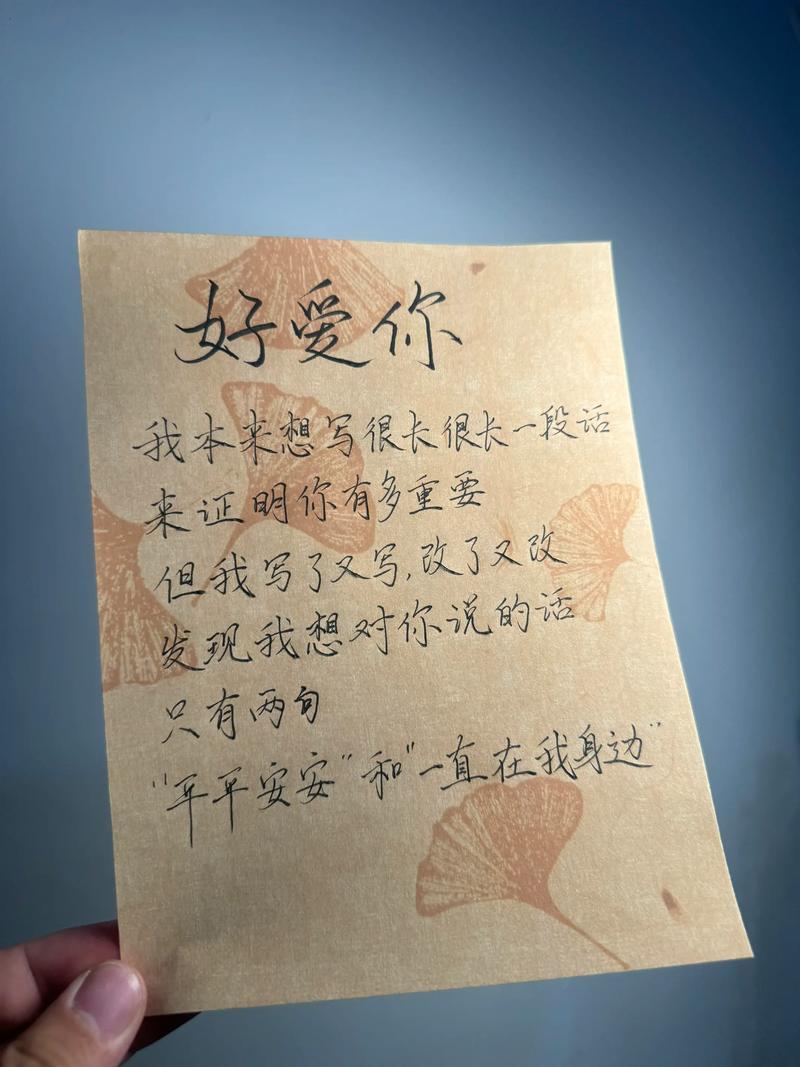 好爱你
我本来想写很长很长一段话
来证明你有多重要
但我写了又写,改了又改
发现我想对你说的话
只有两句
“平平安安”和“一直在我身边”